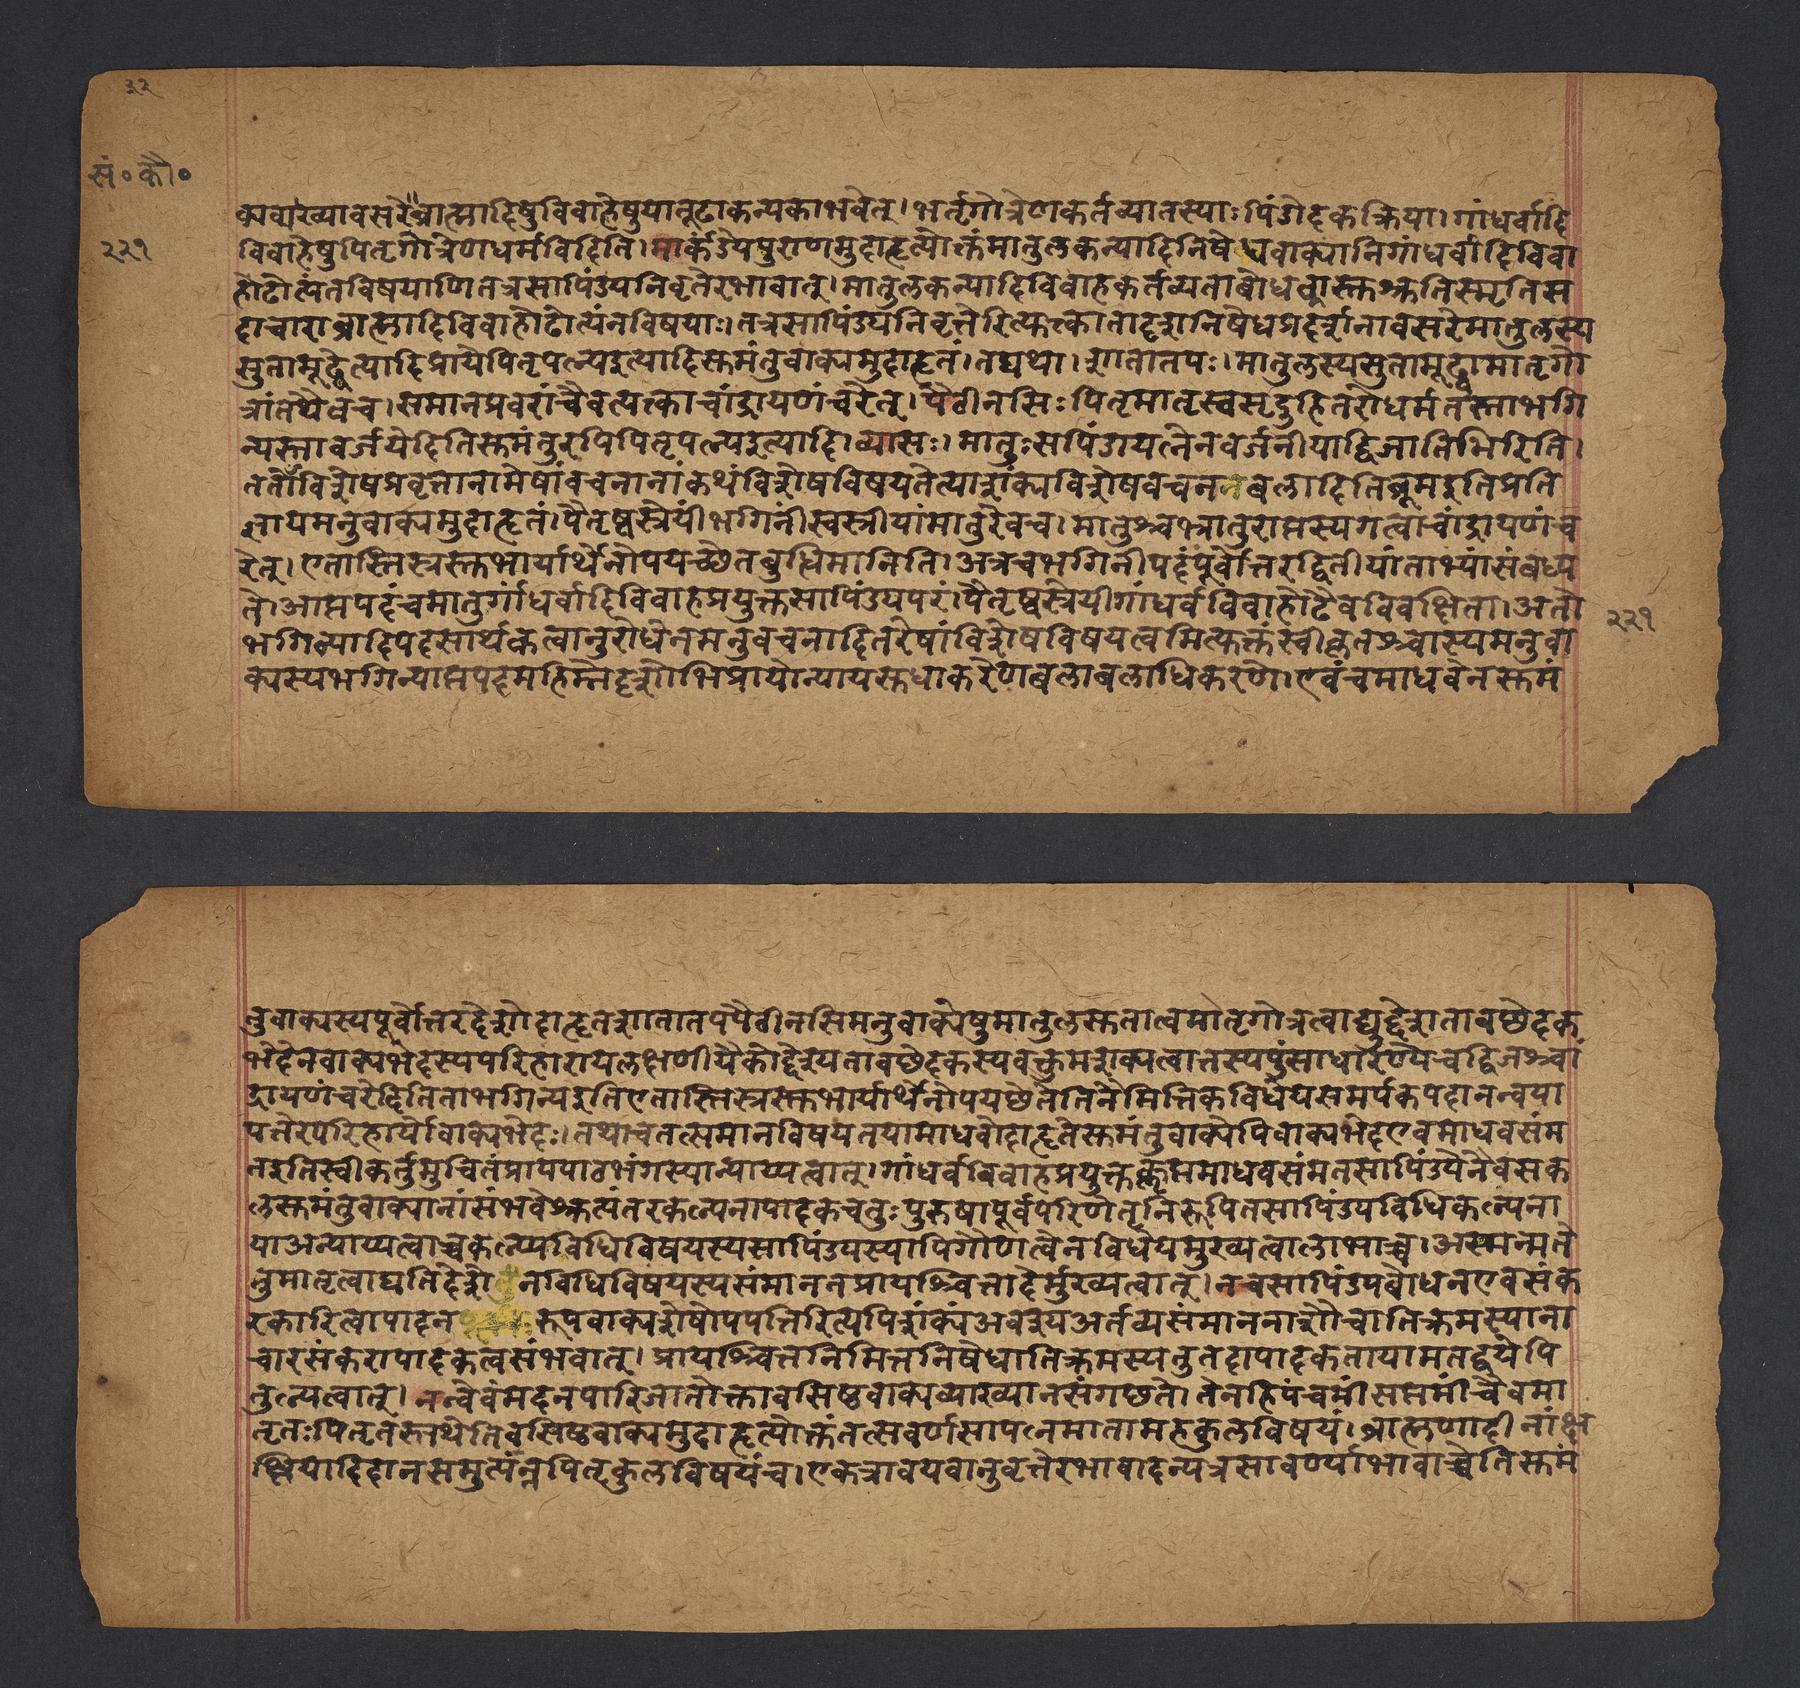 ३२
सं०कौ०
क्यव्याख्यावसरेब्राह्मादिषुविवाहेषुयातूढाकन्यकाभवेत्।भर्तृगोत्रेणकर्तव्यातस्याःपिंडोदकक्रिया।गांधर्वादि
२२१
विवाहेषुपितृगोत्रेणधर्मविदिति।मार्कंडेयपुराणमुदाहृत्योक्तंमातुलकन्यादिनिषेधवाक्यानिगांधर्वादिविवा
होढोत्पंतविषयाणितत्रसापिंड्यनिवृत्तेरभावात्।मातुलकन्यादिविवाहकर्तव्यताबोधकास्तुश्रुतिस्मृतिस
दाचाराब्राह्मादिविवाहोढोत्पंनविषयाः।तत्रसापिंड्यनिवृत्तेरित्युक्त्कातादृशनिषेधप्रदर्शनावसरेमातुलस्य
सुतामूढ्वेत्यादिप्रायेपितृपत्न्यइत्यादिसुमंतुवाक्यमुदाहृतं।तद्यथा।शातातपः।मातुलस्यसुतामूढ्वामातृगो
त्रांतथैवच।समानप्रवरांचैवत्यत्काचांद्रायणंचरेत्।पैठीनसिःपितृमातृस्वसृदुहितरोधर्मतस्ताभगि
न्यस्तावर्जयेदितिसुमंतुरपिपितृपत्न्यइत्यादि।व्यासः।मातुःसपिंडायत्नेनवर्जनीयाद्विजातिभिरिति।
ततोविशेषप्रवृत्तानामेषांवचनानांकथंविशेषविषयतेत्याशंक्यविशेषवचनबलादितिब्रूमइतिप्रति
ज्ञायमनुवाक्यमुदाहृतं।पैतृष्वस्रेयींभगिनींस्वस्त्रीयांमातुरेवच।मातुश्चभ्रातुराप्तस्यगत्वाचांद्रायणंच
रेत्।एतास्तिस्रस्तुभार्यार्थेनोपयच्छेतबुधिमानिति।अत्रचभगिनीपदंपूर्वोत्तरद्वितीयांताभ्यांसंबध्य
ते।आप्तपदंचमातुर्गांधर्वादिविवाहप्रयुक्तसापिंड्यपरं।पैतृष्वस्रेयीगांधर्वविवाहोढैवविवक्षिता।अतो
२२१
भगिन्यादिपदसार्थकत्वानुरोधेनमनुवचनादितरेषांविशेषविषयत्वमित्युक्तंस्वीकृतश्चास्यमनुवा
क्यस्यभगिन्याप्तपदमहिम्नेदृशोभिप्रायोन्यायसुधाकरेणबलाबलाधिकरणे।एवंचमाधवेनसुमं
तुवाक्यस्यपूर्वोत्तरदेशोदाहृतशातातपपैठीनसिमनुवाक्येषुमातुलसुतात्वमातृगोत्रत्वाद्युद्देशतावछेदक
भेदेनवाक्यभेदस्यपरिहारायलक्षणीयैकोद्देश्यतावछेदकस्यवक्तुमशक्यत्वात्तस्यपुंसाधारण्येचद्विजश्चां
द्रायणंचरेदितिताभगिन्यइतिएतास्तिस्रस्तुभार्यार्थेनोपयछेतेतिनैमित्तिकविधेयसमर्पकपदानन्वया
पत्तेरपरिहार्योवाक्यभेदः।तथाचतत्समानविषयतयामाधवोदाहृतेसुमंतुवाक्येपिवाक्यभेदएवमाधवसंम
तइतिस्वीकर्तुमुचितंप्रायपाठभंगस्यान्याय्यत्वात्।गांधर्वविवाहप्रयुक्तकॢप्तमाधवसंमतसापिंड्येनैवसक
लसुमंतुवाक्यानांसंभवेश्रुत्यंतरकल्पनापादकचतुःपुरुषापूर्वपरिणेतृनिरूपितसापिंड्यविधिकल्पना
याअन्याय्यत्वाच्चकल्प्यविधिविषयस्यसापिंड्यस्यापिगौणत्वेनविधेयमुख्यत्वालाभाच्च।अस्मन्मते
तुमातृत्वाद्यतिदेशेनविधिविषयस्यसंमाननप्रायश्चित्तादेर्मुख्यत्वात्।नचसापिंड्यबोधनएवसंक
रकारित्वापादनरूपवाक्यशेषोपपत्तिरित्यपिशंक्यंअवश्यअर्तव्यसंमाननाशौचातिक्रमस्याना
चारसंकरापादकत्वसंभवात्।प्रायश्चित्तनिमित्तनिषेधातिक्रमस्यतुतदापादकतायामतद्वयेपि
तुल्यत्वात्।नन्वेवंमदनपारिजातोक्तावसिष्ठवाक्यव्याख्यानसंगछते।तेनहिपंचमींसप्तमींचैवमा
तृतःपितृतस्तथेतिवसिष्ठवाक्यमुदाहृत्योक्तंतत्सवर्णसापत्नमातामहकुलविषयं।ब्राह्मणादीनांक्ष
त्रियादिदानसमुत्पंन्नपितृकुलविषयंच।एकत्रावयवानुवृत्तेरभावादन्यत्रसावर्ण्याभावाच्चेतिसुमं